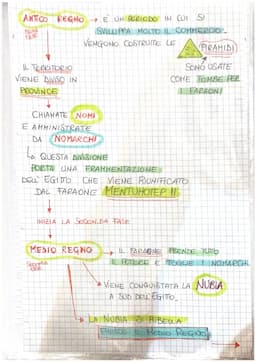 ANTICO REGNO → È UN PERIODO IN CUI SI
PRIMA FASE
SVILUPPA MOLTO IL COMMERCIO.
VENGONO COSTRUITE LE PIRAMIDI
SONO USATE
COME TOMBE PER
I FARAONI
IL TERRITORIO
VIENE DIVISO IN
PROVINCE
CHIAMATE NOMI
E AMMINISTRATE
DA NOMARCHI
↳ QUESTA DIVISIONE
PORTA UNA FRAMMENTAZIONE
DELL'EGITTO CHE VIENE RIUNIFICATO
DAL FARAONE MENTUHOTEP II
INIZIA LA SECONDA FASE
MEDIO REGNO → IL FARAONE PRENDE TUTTO
SECONDA FASE
IL POTERE E TOGLIE I NOMARCHI
VIENE CONQUISTATA LA NUBIA
A SUD DELL'EGITTO.
LA NUBIA SI RIBELLA
FINISCE IL MEDIO REGNO